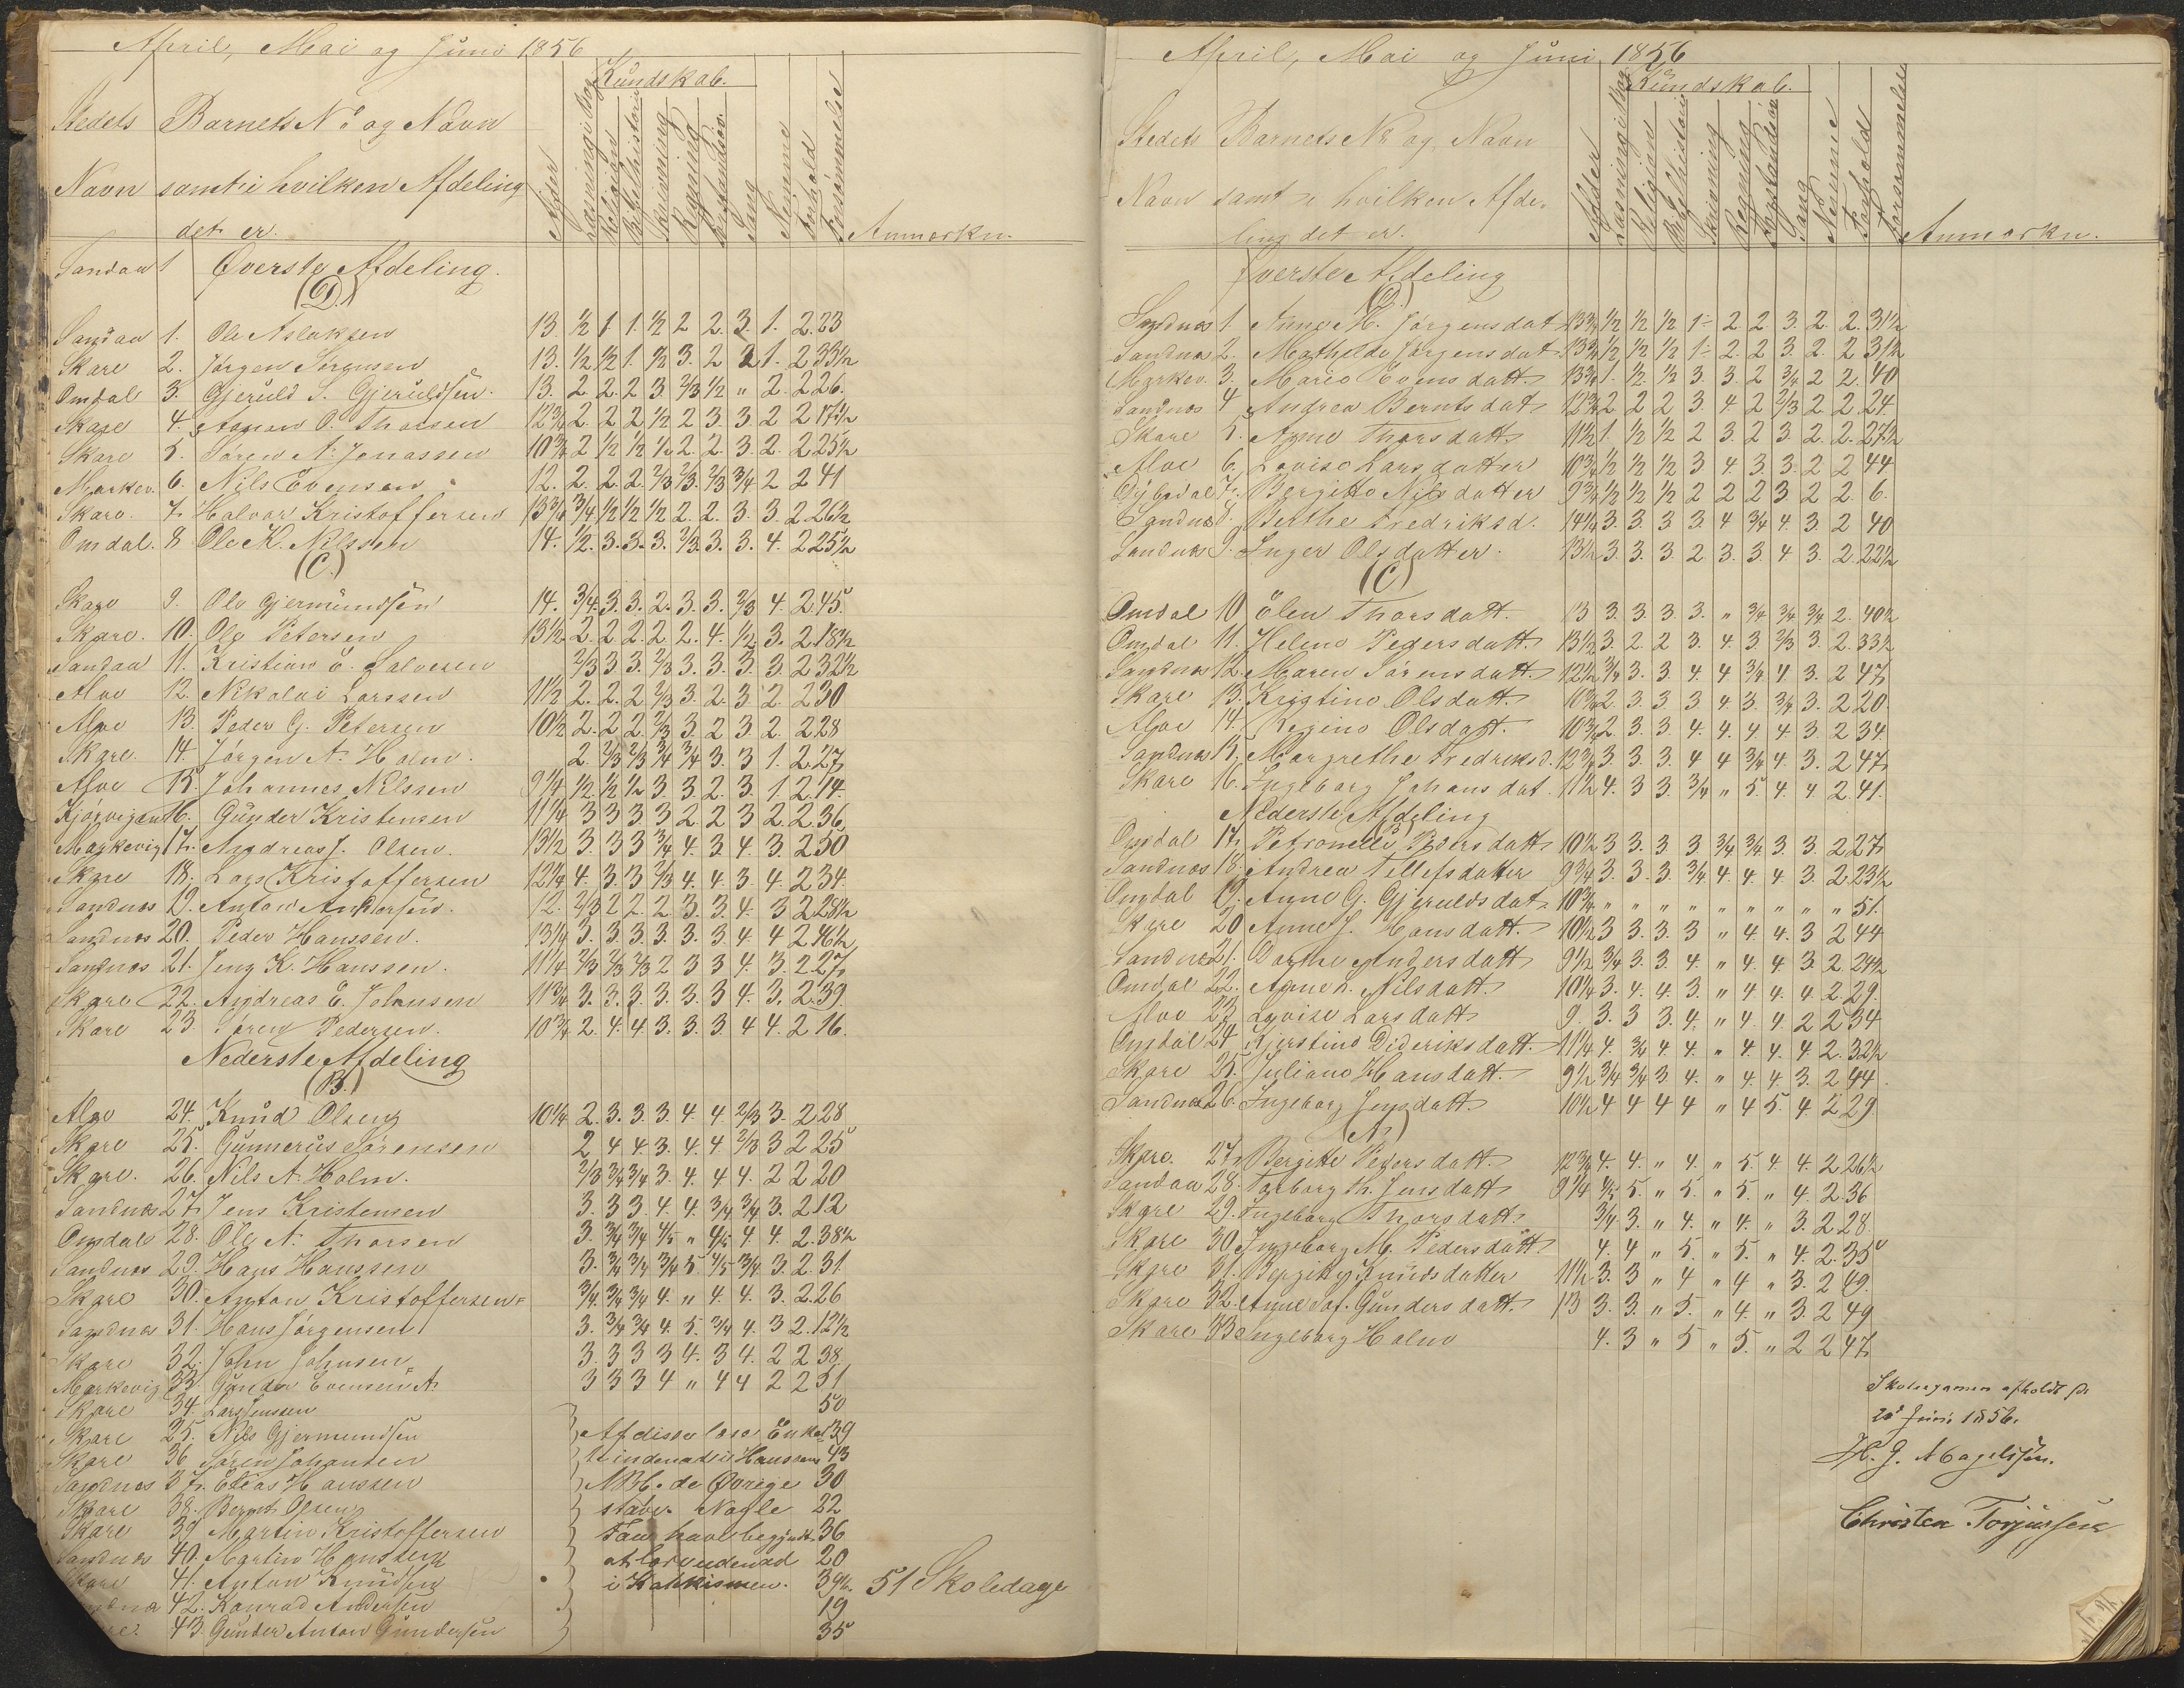 April, Mai og Juni 1856
Kundskab.
Stedets Barnets No og Navn
Navn samt i hvilken Afdeling
det er.
Alder Læsning i Bog Religion Bibelhistorie Skrivning Regning Forstandsöv. Sang Nemme Forhold Forsömmelse Anmærkn.
Øverste Afdeling.
(D.)
Sandaa 1. Ole Aslaksen 13 1/2 1. 1. 1/2 2 2. 3. 1. 2. 23
Skare 2. Jørgen Sørensen 13. 1/2 1/2 1. 1/2 3. 2 2 1. 2 33 1/2
Omdal 3. Gjeruld S. Gjeruldsen. 13. 2 2. 2 3 2/3 1/2 " 2. 2 26.
Skare 4. Aanon O. Thorsen 12 3/4 2. 2 2 1/2 2 3 3 2 2 17 1/2
Skare 5. Søren A. Jonassen 10 3/4 2 1/2 1/2 1/2 2. 2. 3 2. 2 25 1/2
Markev. 6. Nils Evensen 12. 2. 2. 2. 2/3 2/3. 2/3 3/4 2 2 41
Skare. 7. Halvor Kristoffersen 13 3/4 3/4 1/2 1/2 1/2 2. 2. 3. 3. 2 26 1/2
Omdal. 8 Ole K. Nilssen 14. 1/2. 3. 3. 3. 2/3. 3. 3. 4. 2 25 1/2
(C.)
Skare 9. Ole Gjermundsen 14. 3/4. 3. 3. 2. 3. 3. 2/3 4. 2. 45.
Skare. 10. Ole Petersen 13 1/2. 2. 2 2. 2 2. 4. 1/2 3. 2. 18 1/2
Sandaa 11. Kristian E. Salvesen 2/3 3 3. 2/3 3. 3. 3. 3. 2 32 1/2
Alve 12. Nikolai Larssen 11 1/2 2. 2. 2 2/3 3. 2. 3. 2. 2 30
Alve 13. Peder G. Petersen 10 1/2 2. 2 2. 2/3 3. 2 3. 2. 2 28
Skare. 14. Jørgen A. Holm. 2. 2/3 2/3 3/4 3/4 3. 3 1. 2. 27
Alve 15. Johannes Nilssen 9 1/4 1/2. 1/2. 1/2 3. 3 2. 3. 1. 2. 14.
16. Gunder Kristensen 11 1/4 3 3 3. 3 2 2 3 2. 2. 36
Markevig 17. Andreas J. Olsen. 13 1/2 3. 3 3 3/4 4. 3. 4. 3. 2 50
Skare 18. Lars Kristoffersen 12 1/4 4. 3. 3 2/3 4. 4. 3. 4. 2 34.
Sandnæs 19. Anton Andersen. 12. 2/3 2 2. 2. 3. 3. 4. 3 2 28 1/2
Sandnæs 20. Peder Hanssen. 13 1/4 3. 3. 3. 3. 3. 3. 4. 4 2 46 1/2
Sandnæs 21. Jens K. Hanssen. 11 1/4 2/3 2/3 2/3 2 3 3 4. 3. 2. 27
Skare 22. Andreas E. Johnsen 11 3/4 3. 3. 3. 3. 3. 3 4. 3. 2. 39.
Skare 23. Søren Pedersen. 10 3/4 2. 4. 4 3. 3. 3 4 4. 2 16.
Nederste Afdeling
(B.)
Alve 24. Knud Olsen 10 1/4 2. 3. 3 3 4. 4 2/3 3. 2 28
Skare 25. Gunnerus Sørensen 2 4 4. 3. 4. 4. 2/3 3 2 25
Skare. 26. Nils A. Holm. 2/3 3/4 3/4 3 4. 4 4. 2 2 20
Sandnæs 27. Jens Kristensen 3. 3 3. 4. 4 3/4 3/4 3. 2 12
Omdal 28. Ole A. Thorsen 3. 3/4 3/4 4/5 " 4/5 4. 4. 2. 38 1/2
Sandnæs 29. Hans Hanssen 3. 3/4 3/4 3/4 5 4/5 3/4. 3. 2 31.
Skare 30. Anton Kristoffersen 3/4. 3/4 3/4 4. " 4. 4. 3. 2. 26
Sandnæs 31. Hans Jørgensen 3. 3/4 3/4 4. 5. 3/4 4. 3 2. 12 1/2
Skare 32. John Johnsen 3. 3 3 3 4. 3 4. 2 2 38.
Markevig 33. Gunder Evensen A. 3 3 3 4 " 4 4 2 2 31
Skare 34. Lars Jenssen 50
Skare 35. Nils Gjermundsen Af disse læse Enkel 39
Skare 36 Søren Johansen Hanssen 43
Sandnæs 37. Elias Hanssen NB. de Øvrige 30
Skare 38. Bernt Olsen stave. Nogle 22
Skare 39 Martin Kristoffersen Faa have begyndt 36
Sandnæs 40. Martin Hanssen at lære udenad 20
Skare 41. Anton Knudsen i Katekismen. 39 1/2. 51 Skoledage
42. Konrad Andersen 19
43. Gunder Anton Gundersen 35
April, Mai og Juni 1856
Kundskab.
Stedets Barnets No og Navn
Navn samt i hvilken Afde-
ling det er.
Alder Læsning i Bog Religion Biblhistori Skrivning Regning Forstandsöv Sang Nemme Forhold Forsømmelse Anmærkn.
Øverste Afdeling
(D.)
Sandnæs 1. Anne K. Jørgensdat 13 3/4 1/2 1/2 1/2 1- 2 2 3. 2. 2. 31 1/2
Sandnæs 2. Mathilde Jørgensdat. 13 3/4 1/2 1/2 1/2 1- 2. 2 3. 2. 2 31 1/2
Markev. 3. Marie Evensdatt. 13 3/4 1. 1/2. 1/2 3 3. 2 3/4 2 2. 40
Sandnæs 4 Andrea Berntsdat 12 3/4 2 2 2 3. 4 2 2/3 2 2. 24.
Skare 5. Anne Thorsdatt 11 1/2 1. 1/2 1/2 2 3. 2 3. 2. 2. 27 1/2
Alve 6. Lovise Larsdatter 10 3/4 1/2 1/2 1/2 3 4 3 3. 2 2 44
Dybedal 7. Bergitte Nilsdatter 9 3/4 1/2 1/2 1/2 2 2 2 3 2 2. 6.
Sandnæs 8. Berthe Fredriksd. 14 1/4 3. 3. 3 3. 4 3/4 4. 3. 2 40
Sandnæs 9. Inger Olsdatter. 13 1/2 3 3. 3 2 3. 3. 4 3. 2. 22 1/2
(C.)
Omdal 10. Elen Thorsdatt. 13 3. 3. 3. 3. " 3/4 3/4 3/4 2. 40 1/2
Omdal 11. Helene Pedersdatt 13 1/2 3. 2. 2 3. 4. 3 2/3 3. 2. 33 1/2
Sandnæs 12. Maren Sørensdatt. 12 1/2 3/4 3. 3. 4. 4 3/4 4 3. 2 47
Skare 13. Kristine Olsdatt. 10 3/4 2. 3 3 3. 4. 3. 3/4 3. 2 20.
Alve 14. Regine Olsdatt. 10 3/4 2. 3. 3. 4. 4. 4. 4 3 2 34.
Sandnæs 15. Margrethe Fredriksd. 12 3/4 3. 3. 3. 4 4 3/4 4. 3. 2 47
Skare 16. Ingeborg Johansdat. 11 1/2 4. 3 3. 3/4 " 5. 4. 4. 2 41.
Nederste Afdeling
(B)
Omdal 17. Petronelle Pedersdatt 10 1/2 3 3. 3 3 3/4 3/4. 3. 3. 2 27
Sandnæs 18. Andrea Tellefsdatter 9 3/4 3. 3. 3. 3/4 4. 4. 4 3. 2. 23 1/2
Omdal 19. Anne G. Gjeruldsdat 10 3/4 " " " " " " " " " 51.
Skare 20 Anne J. Hansdatt. 10 1/2 3 3. 3. 3 " 4. 4. 3 2 44
Sandnæs 21. Dorthe Andersdatt 9 1/2 3/4 3. 3. 4. " 4. 4 3. 2. 24 1/2
Omdal 22. Anne N. Nilsdatt. 10 1/4 3. 4. 4. 3. " 4 4. 4 2. 29.
Alve 23. Lovise Larsdatt 9. 3. 3 3. 4. " 4. 4. 2 2 34
Omdal 24 Kjerstine Dideriksdatt. 11 1/4 4. 3/4 4. 4. " 4. 4. 4 2. 32 1/2
Skare 25. Juliane Hansdatt. 9 1/2 3/4 3/4 3. 4. " 4. 4. 3. 2 44.
Sandnæs 26. Ingeborg Jensdatt. 10 1/2 4 4 4 4 " 4 5. 4 2 29.
(A.)
Skare. 27. Bergitte Pedersdatt. 12 3/4 4. 4. " 4. " 5. 4. 4. 2 26 1/2
Sandaa 28. Torborg Th. Jensdatt 9 1/4 4/5 5. " 5. " 5. " 4. 2. 36
Skare 29. Ingeborg Thorsdatt. 3/4 3. " 4. " 4. " 3. 2 28.
Skare 30 Ingeborg M. Pedersdatt. 4. 4 " 5. " 5. " 4. 2. 35
Skare 31. Bergitte Knudsdatter 11 1/2 3. 3 " 4 " 4 " 3. 2 49.
Skare 32. Anne Sof. Gundersdatt. 13 3. 3. " 5. " 4. " 3 2 49
Skare 33 Ingeborg Holm 4. 3 " 5 " 5. " 2 2 47
Skoleexamen afholdt d.
20 Juni 1856.
H. J. Magelssen.
Christen Torjussen